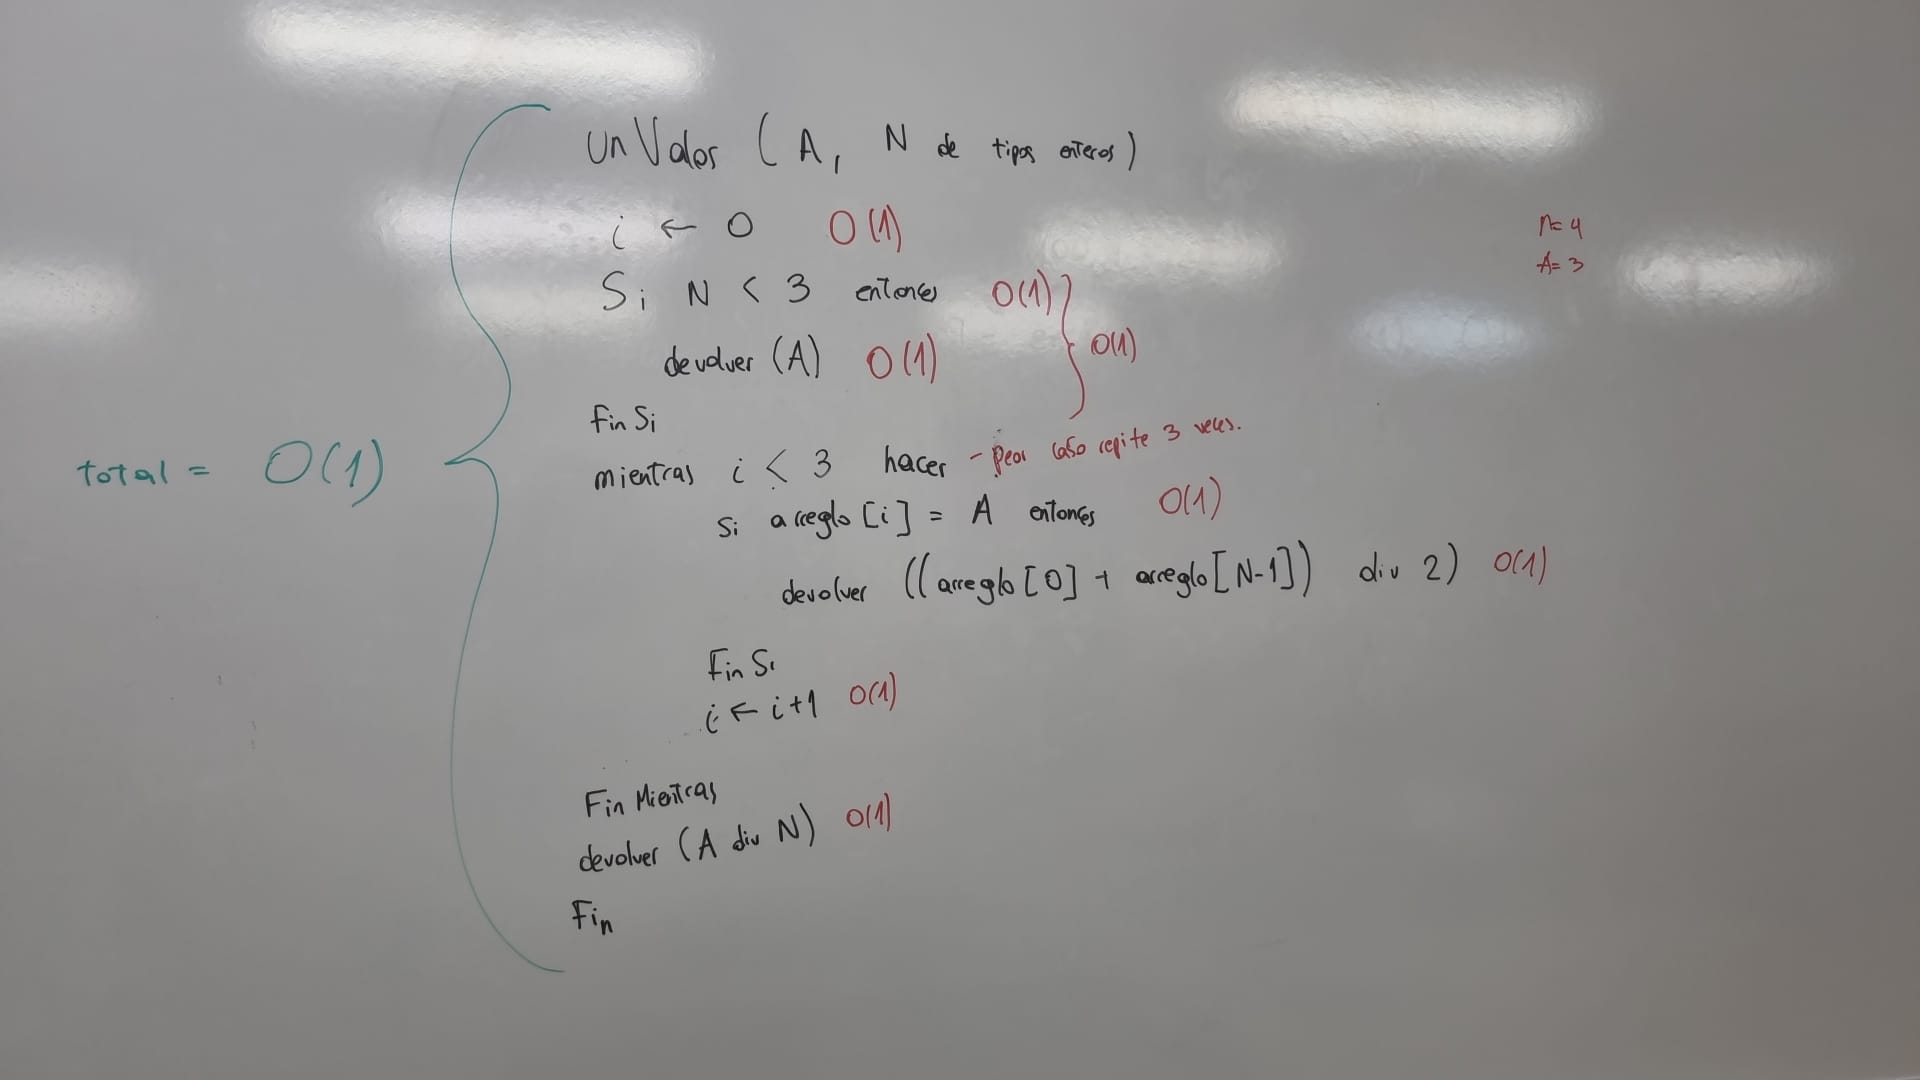 un Valor (A, N de tipos enteros)
i ← 0 O(1)
Si N < 3 entonces O(1)
devolver (A) O(1)
O(1)
Fin Si
mientras i < 3 hacer - peor caso repite 3 veces.
Si arreglo [i] = A entonces O(1)
devolver ((arreglo [0] + arreglo [N-1]) div 2) O(1)
Fin Si
i ← i+1 O(1)
Fin Mientras
devolver (A div N) O(1)
Fin
total = O(1)
N= 4
A= 3